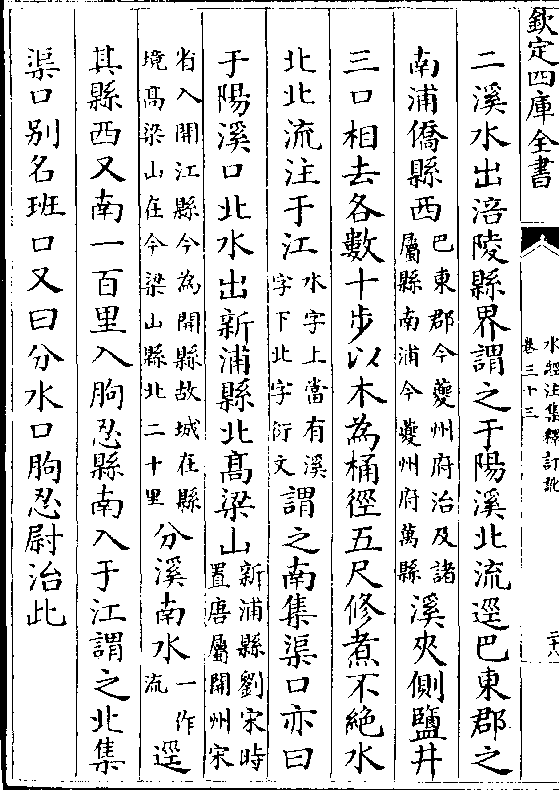 欽定四庫全書
水經注集釋訂訛
卷三十三
二溪水出涪陵縣界謂之于陽溪北流逕巴東郡之
南浦僑縣西巴東郡今夔州府治及諸屬縣南浦今夔州府萬縣溪夾側鹽井
三口相去各數十步以木為桶徑五尺修煮不絶水
北北流注于江水字上當有溪字下北字衍文謂之南集渠口亦曰
于陽溪口北水出新浦縣北髙梁山新浦縣劉宋時置唐屬開州宋
省入開江縣今為開縣故城在縣境髙梁山在今梁山縣北二十里分溪南水一作流逕
其縣西又南一百里入朐忍縣南入于江謂之北集
渠口别名班口又曰分水口朐忍尉治此